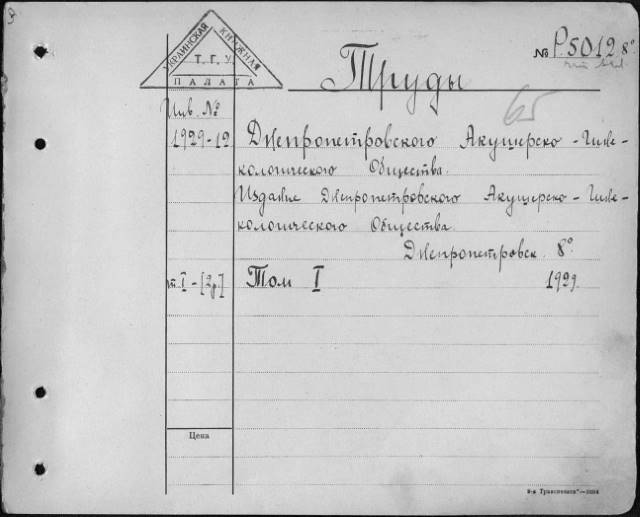 УКРАИНСКАЯ КНИЖНАЯ
Т. Г. У.
ПАЛАТА
№ P.5012 8°
Труды
65
Инв. №
1929-12 Днепропетровского Акушерско-Гине-
кологического Общества.
Издание Днепропетровского Акушерско-Гине-
кологического Общества.
Днепропетровск. 8°
т. I - [2р.] Том I 1929.
Цена